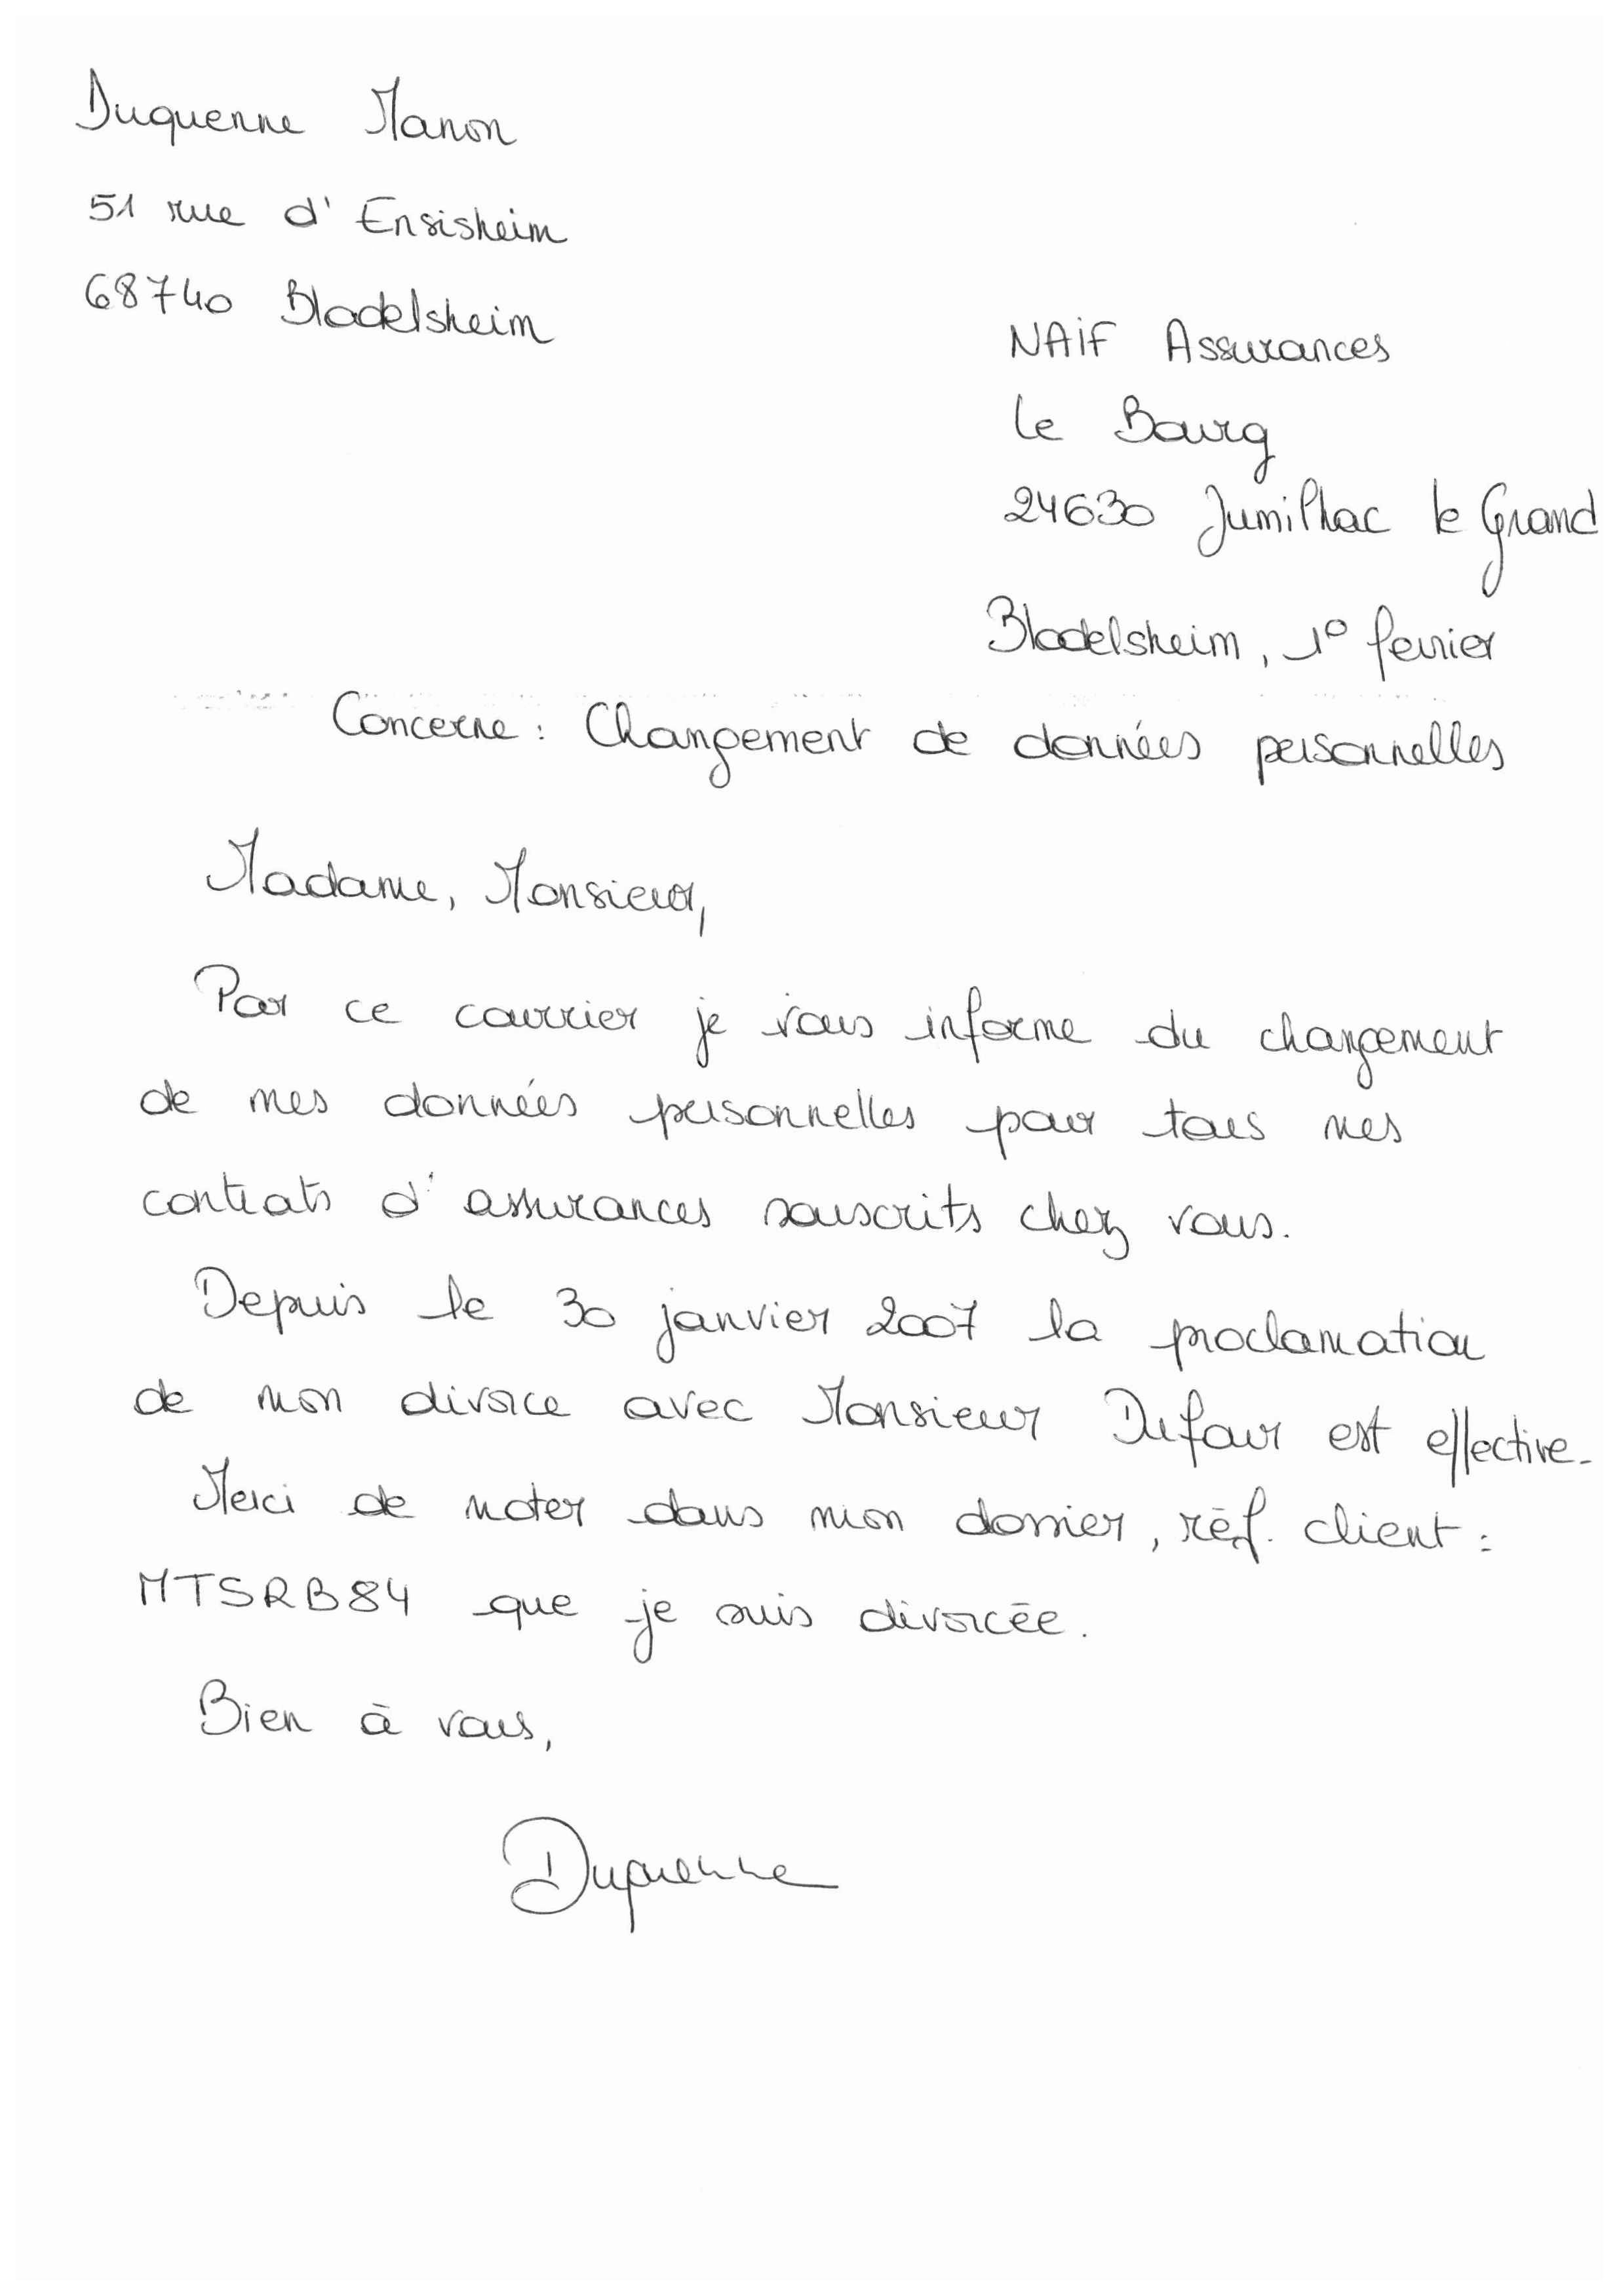 Duquenne Manon
51 rue d'Ensisheim
68740 Blodelsheim
NAIF Assurances
Le Bourg
24630 Jumilhac le Grand
Blodelsheim, 1° fevrier
Concerne : Changement de données personnelles
Madame, Monsieur,
Par ce courrier je vous informe du changement
de mes données personnelles pour tous mes
contrats d'assurances souscrits chez vous.
Depuis le 30 janvier 2007 la proclamation
de mon divorce avec Monsieur Dufour est effective.
Merci de noter dans mon dossier, réf. client :
MTSRB84 que je suis divorcée.
Bien à vous,
Duquenne